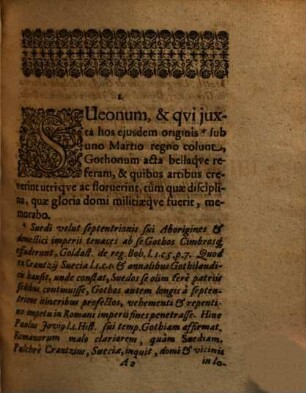 I.
SUeonum, & qvi jux-
ta hos ejusdem originis sub
uno Martio regno colunt,
Gothonum acta bellaqve re-
feram, & quibus artibus cre-
verint utriqve ac floruerint, cùm quæ discipli-
na, quæ gloria domi militiæqve fuerit, me-
morabo.
Suedi velut septentrionis sui Aborigines &
domestici imperii tenaces ab se Gothos Cimbrosq;
effuderunt, Goldast. de reg. Boh. l.1.c.5.p.7. Quod
ex Crantzij Suecia l.1.c.1. & annalibus Gothilandi-
cis hausse, unde constat, Suedos se olim ferè patriis
sedibus continuisse, Gothos autem longè à septen-
trione itineribus profectos, vehementi & repenti-
no impetu in Romani imperii fines penetrasse. Hinc
Paulus Jovip l.1. Hist. sui temp. Gothiam affirmat,
Romanorum malo clariorem, quàm Suediam,
Pulchrè Crantzius, Suecia, inquit, domi & vicinis
A2 in lo-